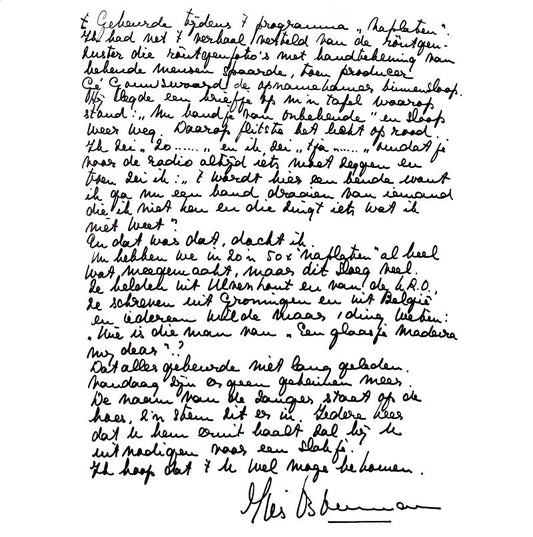 't Gebeurde tijdens 't programma „Naplaten".
Ik had net 't verhaal verteld van de röntgen-
zuster die röntgenfoto's met handtekening van
bekende mensen spaarde, toen producer
Gé Gouwswaard de opnamekamer binnensloop.
Hij legde een briefje op m'n tafel waarop
stand: „Nu bandje van onbekende" en sloop
weer weg. Daarop flitste het licht op rood.
Ik zei „ zo ....... " en ik zei „ tja ...... " omdat je
voor de radio altijd iets moet zeggen en
toen zei ik: „ 't wordt hier een bende want
ik ga nu een band draaien van iemand
die ik niet ken en die zingt iets wat ik
niet weet".
En dat was dat, dacht ik.
Nu hebben we in zo'n 50 x „Naplaten" al heel
wat meegemaakt, maar dit sloeg veel.
Ze belden uit Ulvenhout en van de K.R.O.,
ze schreven uit Groningen en uit België
en iedereen wilde maar 1 ding weten:
„Wie is die man van „ Een glaasje Madeira
my dear"?
Dat alles gebeurde niet lang geleden.
Vandaag zijn er geen geheimen meer.
De naam van de zanger staat op de
hoes, z'n stem zit er in. Iedere keer
dat U hem eruit haalt zal hij U
uitnodigen voor een slokje.
Ik hoop dat 't U wel moge bekomen.